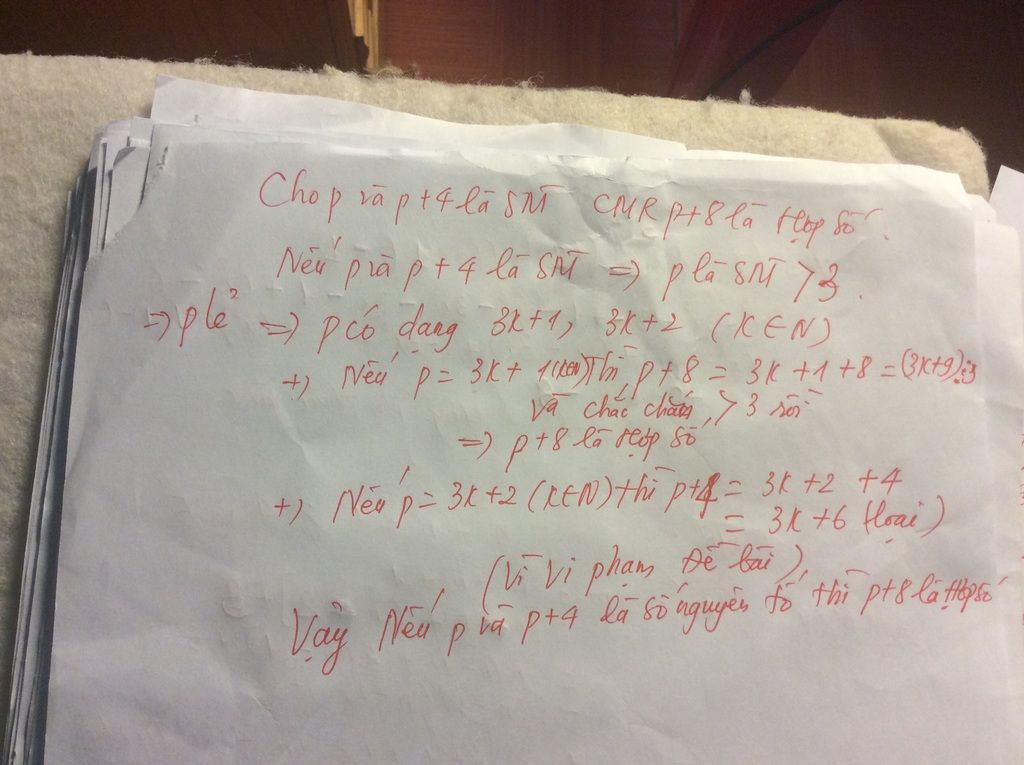 Cho p và p+4 là SNT CMR p+8 là Hợp số.
Nếu p và p + 4 là SNT => p là SNT > 3.
=> p lẻ => p có dạng 3K+1, 3K+2 (K∈N)
+) Nếu p = 3K + 1(K∈N) Thì p+8 = 3K +1+8 = (3K+9)⋮3
Và chắc chắn > 3 rồi
=> p+8 là Hợp số
+) Nếu p = 3K+2 (K∈N) thì p+4 = 3K+2 +4
= 3K+6 (loại)
(Vì Vi phạm Đề bài)
Vậy Nếu p và p+4 là số nguyên tố thì p+8 là Hợp số